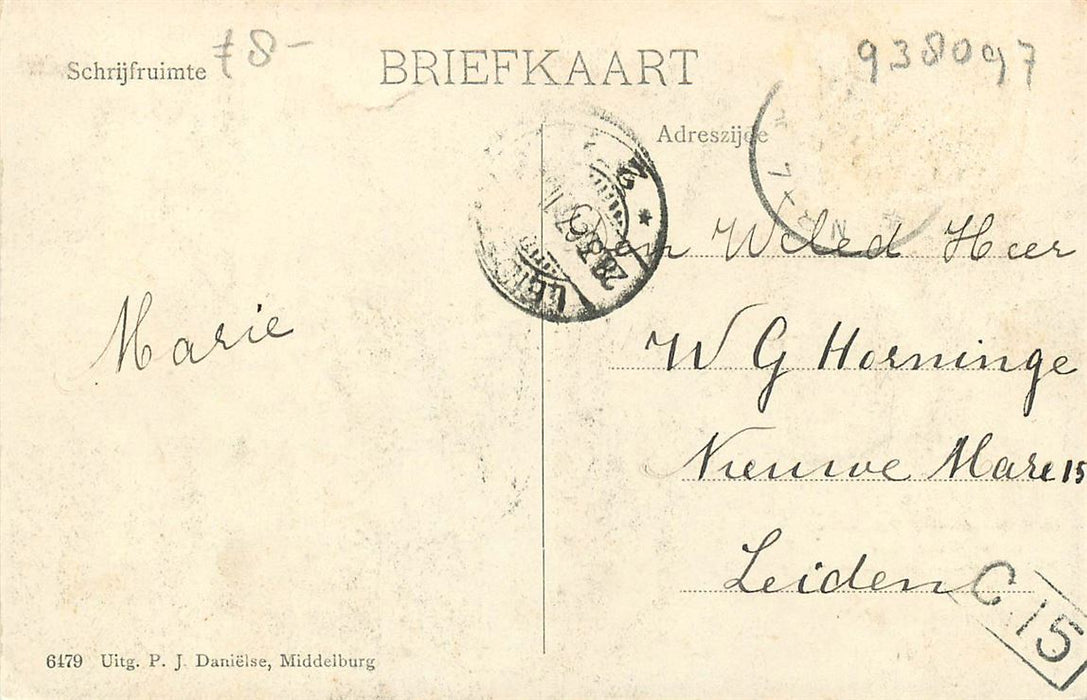 Schrijfruimte
f 8-
BRIEFKAART
938097
Adreszijde
Weled Heer
W G Horninge
Nieuwe Mare 15
Leiden
Marie
C 15
6479 Uitg. P. J. Daniëlse, Middelburg